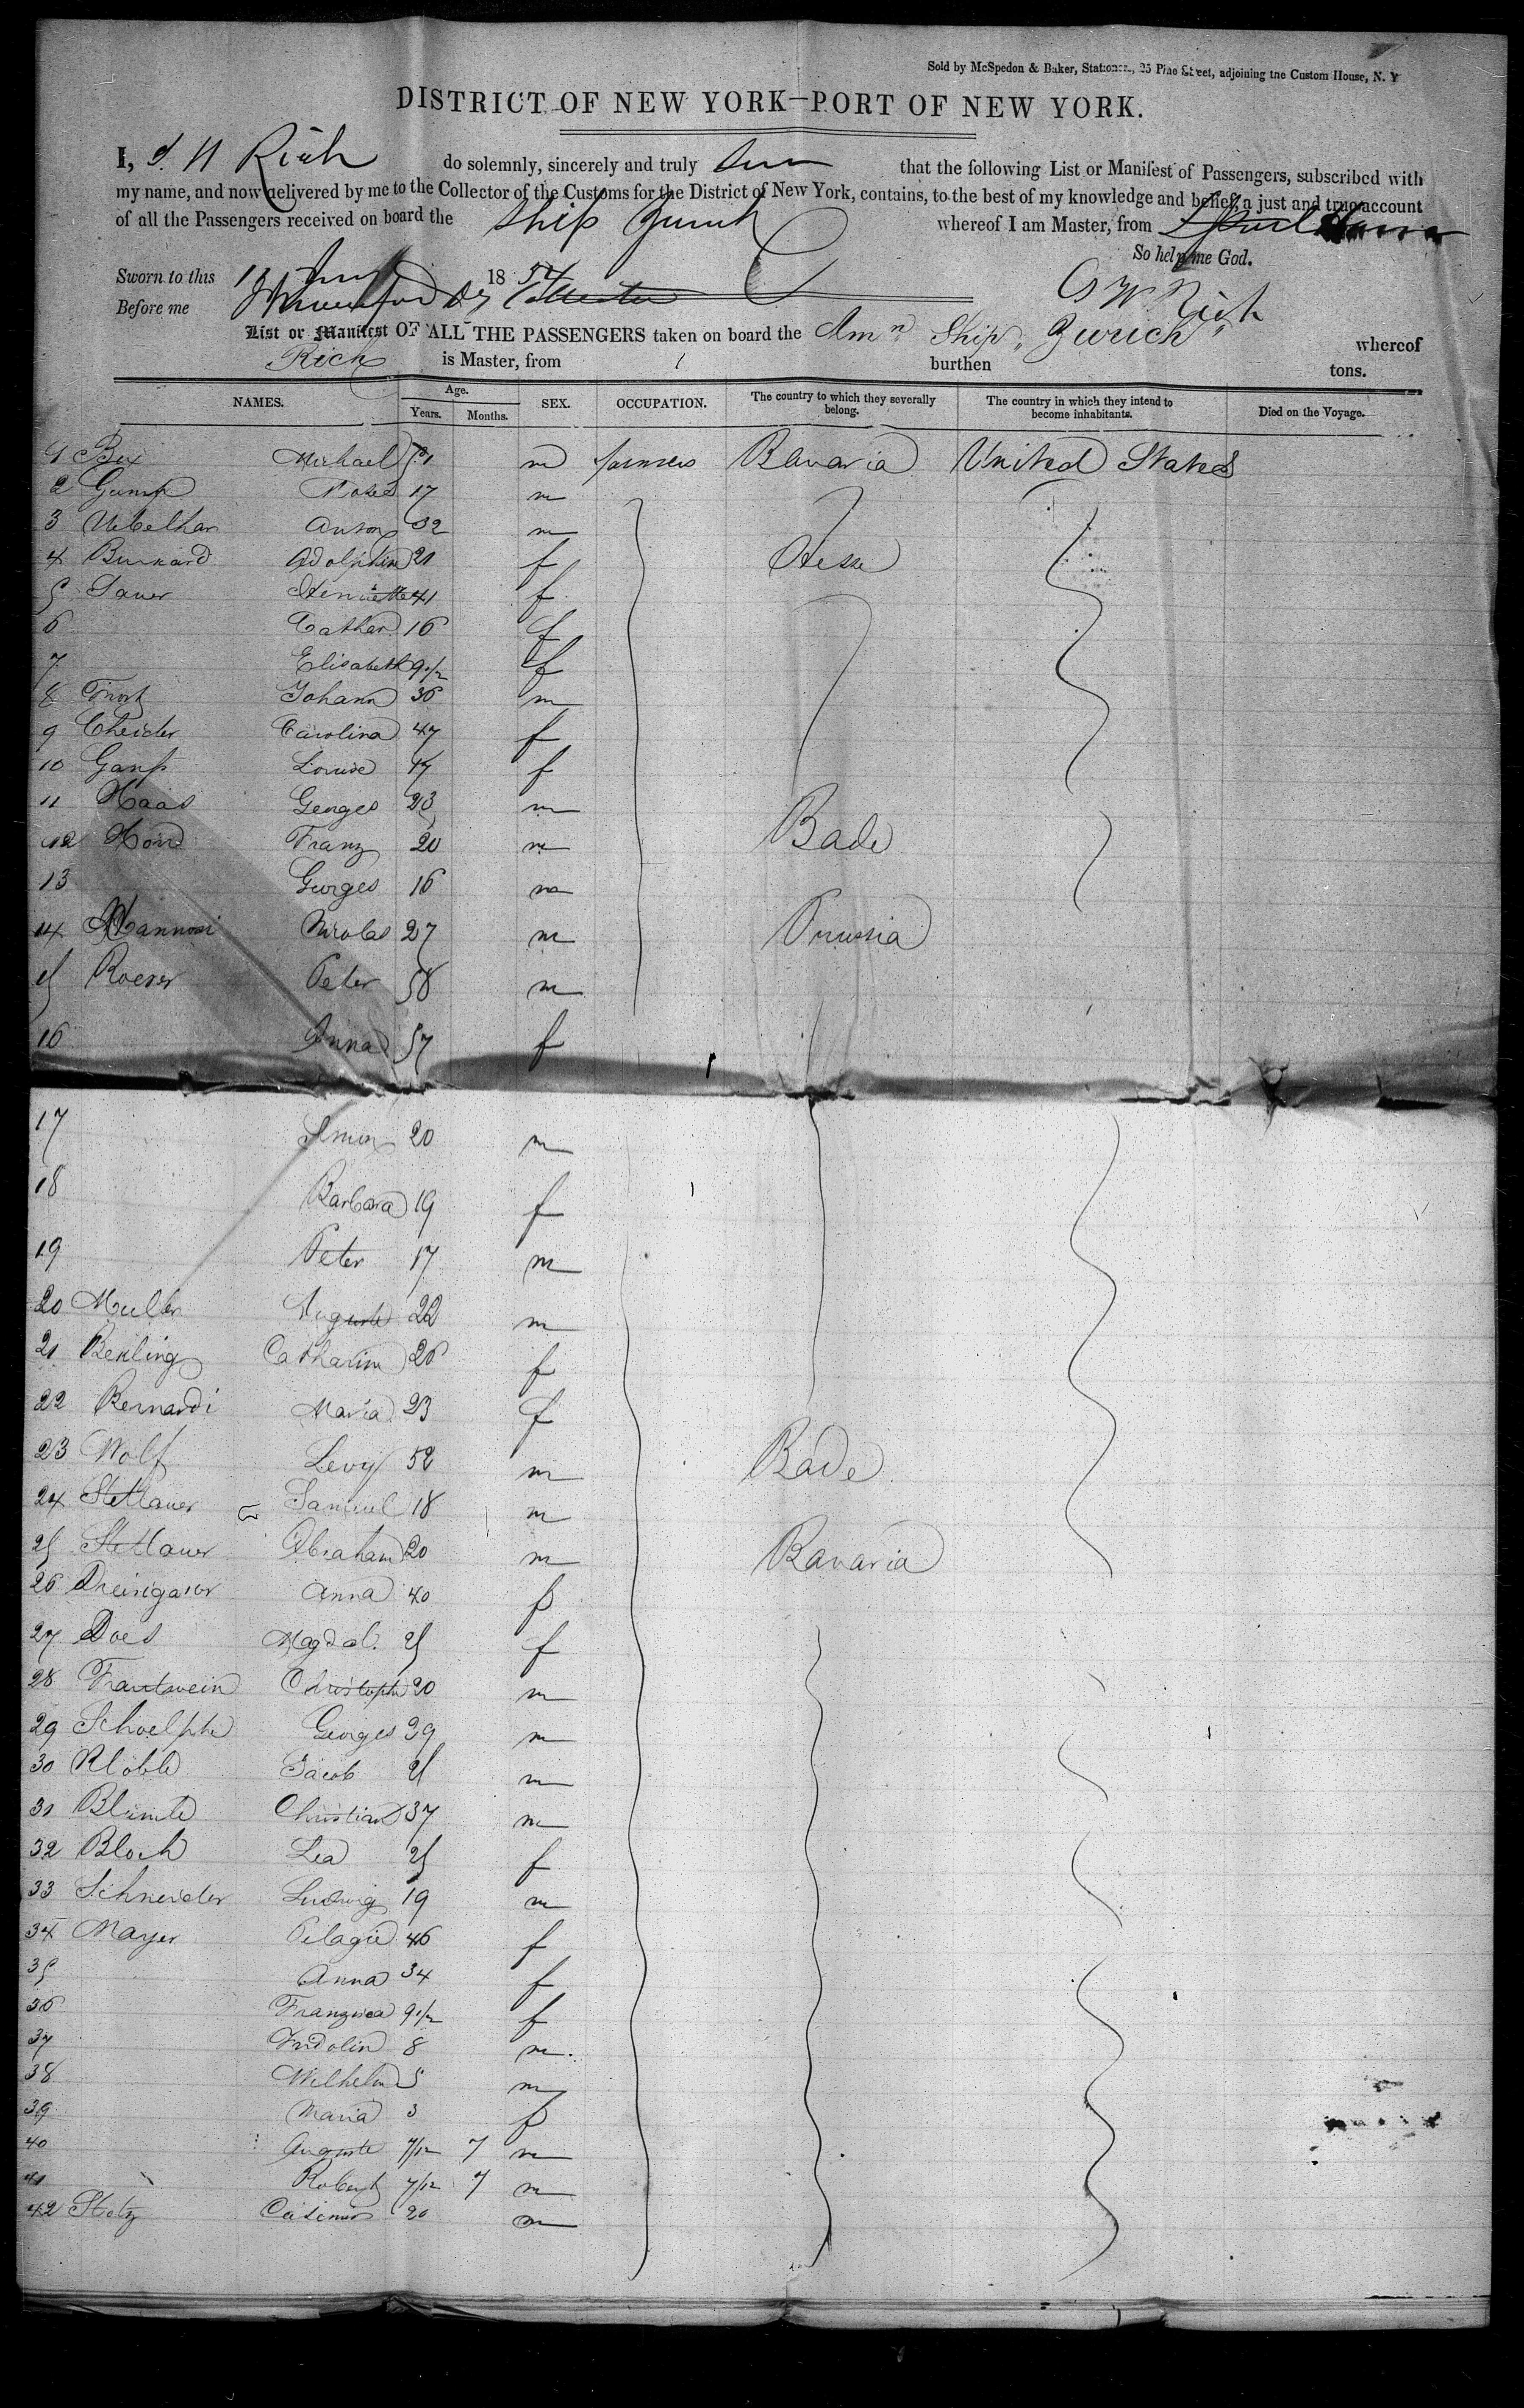 Sold by McSpedon & Baker, Stationers, 25 Pine Street, adjoining the Custom House, N. Y
DISTRICT OF NEW YORK—PORT OF NEW YORK.
I, Rich do solemnly, sincerely and truly that the following List or Manifest of Passengers, subscribed with
my name, and now delivered by me to the Collector of the Customs for the District of New York, contains, to the best of my knowledge and belief, a just and true account
of all the Passengers received on board the Ship Zurich whereof I am Master, from
So help me God.
Sworn to this 18 54
Before me
W Rich
List or Manifest OF ALL THE PASSENGERS taken on board the Amn Ship "Zurich" whereof
Rich is Master, from burthen tons.
NAMES. Age. Years. Months. SEX. OCCUPATION. The country to which they severally belong. The country in which they intend to become inhabitants. Died on the Voyage.
1 Michael m farmers Bavaria United States
2 Gump Moses 17 m
3 Anton 32 m
4 21 f Hesse
5 Sauer Henriette 41 f
6 Cathar. 16 f
7 Elisabeth 9 1/2 f
8 Johann 36 m
9 Carolina 47 f
10 Louise 17 f
11 Haas Georges 23 m
12 Franz 20 m Bade
13 Georges 16 m
14 Nicolas 27 m Prussia
15 Roeser Peter 58 m
16 Anna 57 f
17 Simon 20 m
18 Barbara 19 f
19 Peter 17 m
20 Muller Auguste 22 m
21 Catharina 26 f
22 Bernardi Maria 23 f
23 Wolf Levy 52 m Bade
24 Stettauer Samuel 18 m
25 Stettauer Abraham 20 m Bavaria
26 Anna 40 f
27 Does Magdal. 25 f
28 Trautwein Christoph 20 m
29 Georges 29 m
30 Jacob 25 m
31 Christian 37 m
32 Bloch Lea 25 f
33 Schneider Ludwig 19 m
34 Mayer Pelagie 46 f
35 Anna 34 f
36 Franzisca 9 1/2 f
37 Fridolin 8 m
38 Wilhelm 5 m
39 Maria 3 f
40 Auguste 7/12 7 m
41 Robert 7/12 7 m
42 Stotz Casimir 20 m